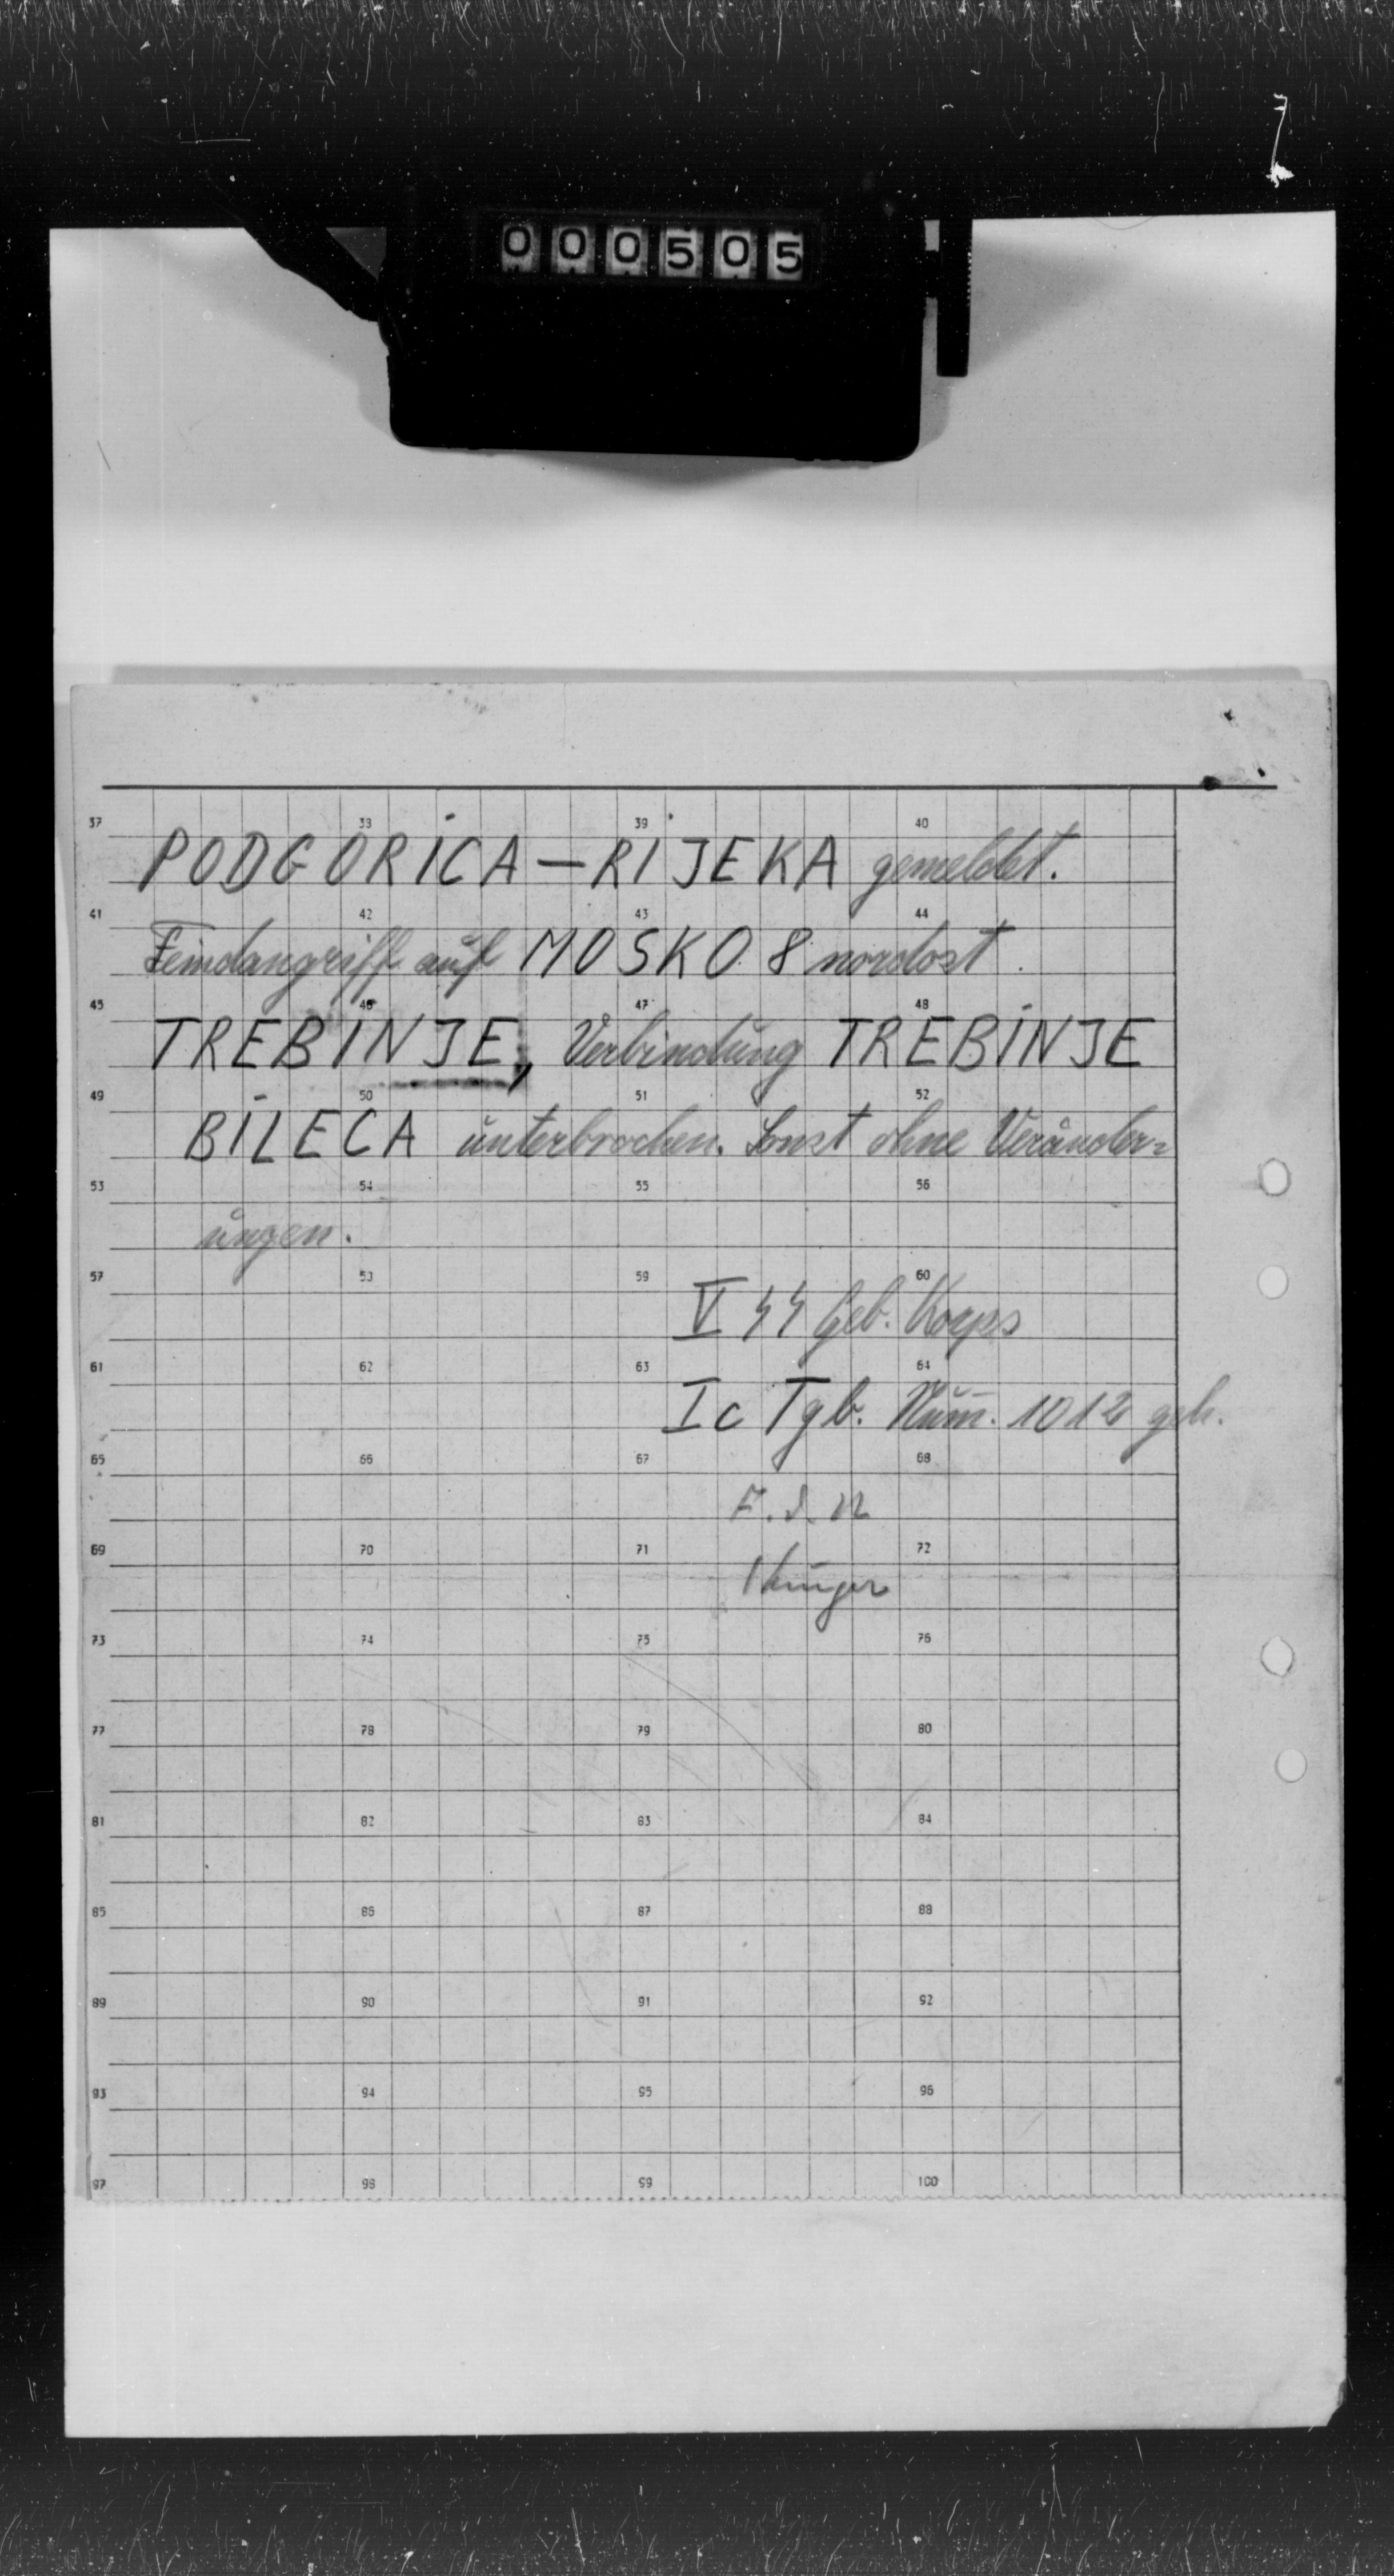 000505
37 38 39 40
PODGORICA – RIJEKA gemeldet.
41 42 43 44
Feindangriff auf MOSKO 8 nordost
45 46 47 48
TREBINJE, Verbindung TREBINJE
49 50 51 52
BILECA unterbrochen. Sonst ohne Veränder=
53 54 55 56
ungen.
57 58 59 60
V SS Geb. Korps
61 62 63 64
Ic Tgb. Num. 1012 geh.
65 66 67 68
F. d. R
69 70 71 72
73 74 75 76
77 78 79 80
81 82 83 84
85 86 87 88
89 90 91 92
93 94 95 96
97 98 99 100